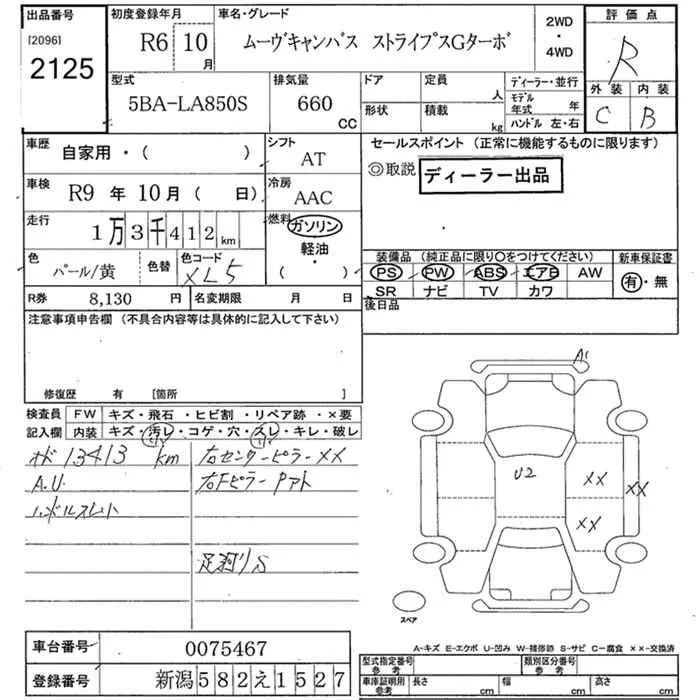 出品番号
[2096]
2125
初度登録年月
R6 10月
車名・グレード
ムーヴキャンバス ストライプスGターボ
2WD
・
4WD
評価点
R
外装 内装
C B
型式
5BA-LA850S
排気量
660 CC
ドア
形状
定員 人
積載 kg
ディーラー・並行
モデル年式 年
ハンドル 左・右
車歴
自家用・( )
シフト
AT
車検
R9 年 10月 ( 日)
冷房
AAC
走行
1万3千412km
燃料
ガソリン
軽油
・
( )
色
パール/黄
色替
色コード
XL5
R券 8,130 円
名変期限 月 日
セールスポイント (正常に機能するものに限ります)
◎取説 ディーラー出品
装備品 (純正品に限り○をつけてください)
PS PW ABS エアB AW
SR ナビ TV カワ
新車保証書
有・無
後日品
注意事項申告欄 (不具合内容等は具体的に記入して下さい)
修復歴 有 [箇所 ]
検査員記入欄
FW キズ・飛石・ヒビ割・リペア跡・×要
内装 キズ・汚レ・コゲ・穴・スレ・キレ・破レ
13413 km
右センターピラーXX
A.U.
右Fピラー Pアト
ハンドルスレ
S
A1
U2
XX
XX
XX
スペア
A-キズ E-エクボ U-凹み W-補修跡 S-サビ C-腐食 ××-交換済
車台番号 0075467
登録番号 新潟582え1527
型式指定番号
参考
類別区分番号
参考
車庫証明用
参考
長さ cm
幅 cm
高さ cm